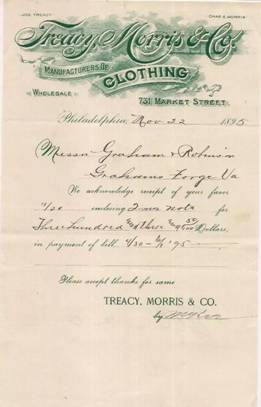 JOS. TREACY. CHAS. E. MORRIS.
Treacy, Morris & Co.
MANUFACTURERS OF
CLOTHING
WHOLESALE
731 MARKET STREET.
Philadelphia, Nov 22 1895
Messrs Graham & Robinson
Grahams Forge Va
We acknowledge receipt of your favor
11/20 enclosing 2 your note for
Three hundred & three Dollars,
in payment of bill.
Please accept thanks for same
TREACY, MORRIS & CO.
by